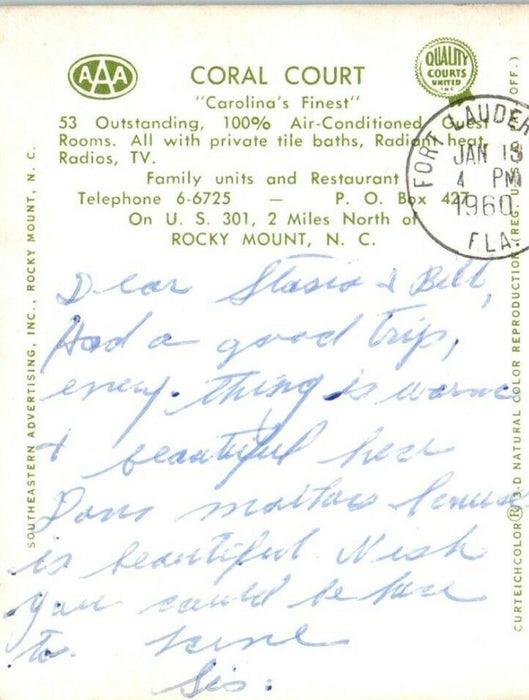 AAA
CORAL COURT
QUALITY
COURTS
UNITED
INC
"Carolina's Finest"
53 Outstanding, 100% Air-Conditioned Guest
Rooms. All with private tile baths, Radiant heat,
Radios, TV.
Family units and Restaurant
Telephone 6-6725 — P. O. Box 427
On U. S. 301, 2 Miles North of
ROCKY MOUNT, N. C.
FORT LAUDER
JAN 13
4 PM
1960
FLA.
SOUTHEASTERN ADVERTISING, INC., ROCKY MOUNT, N. C.
CURTEICHCOLOR® 3-D NATURAL COLOR REPRODUCTION (REG. U. OFF.)
Dear Stasia & Bill,
Had a good trip,
every. thing is warm
& beautiful here
Dons house
is beautiful. Wish
you could be here
to.
Sis.